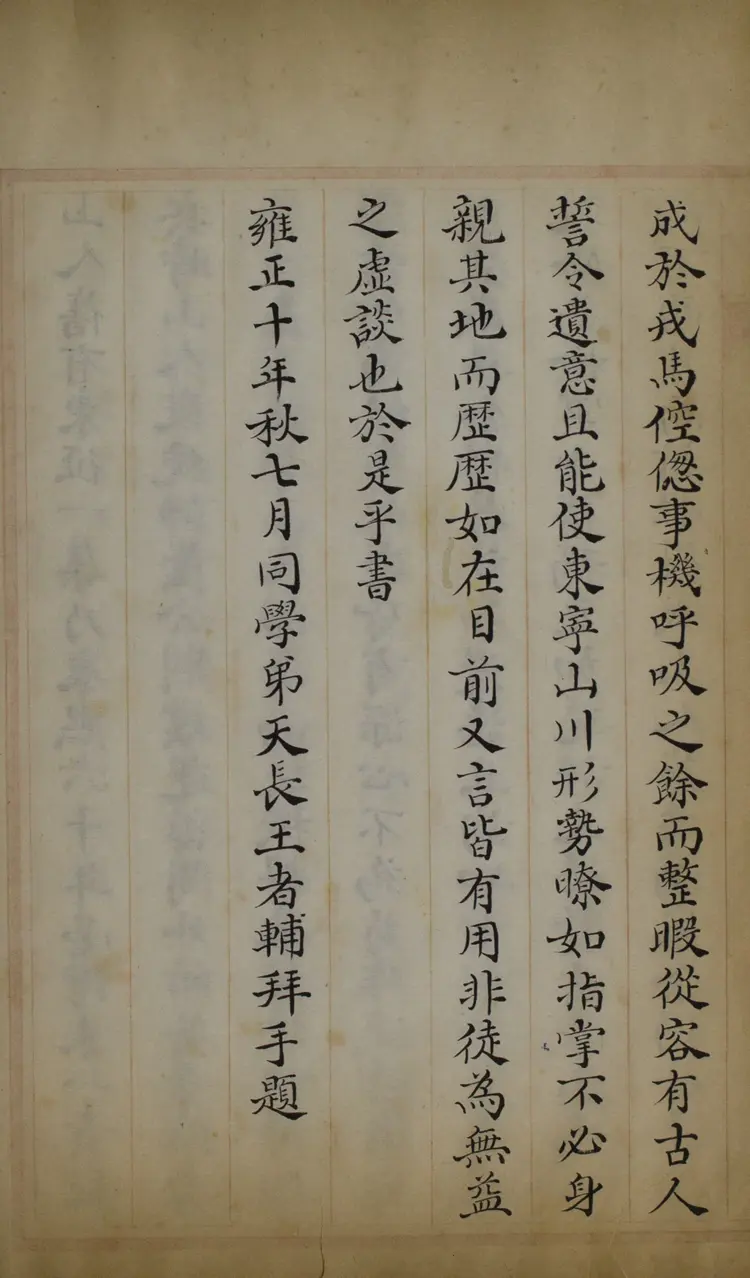 成於戎馬倥傯事機呼吸之餘而整暇從容有古人
誓令遺意且能使東寧山川形勢暸如指掌不必身
親其地而歷歷如在目前又言皆有用非徒為無益
之虛談也於是乎書
雍正十年秋七月同學弟天長王者輔拜手題